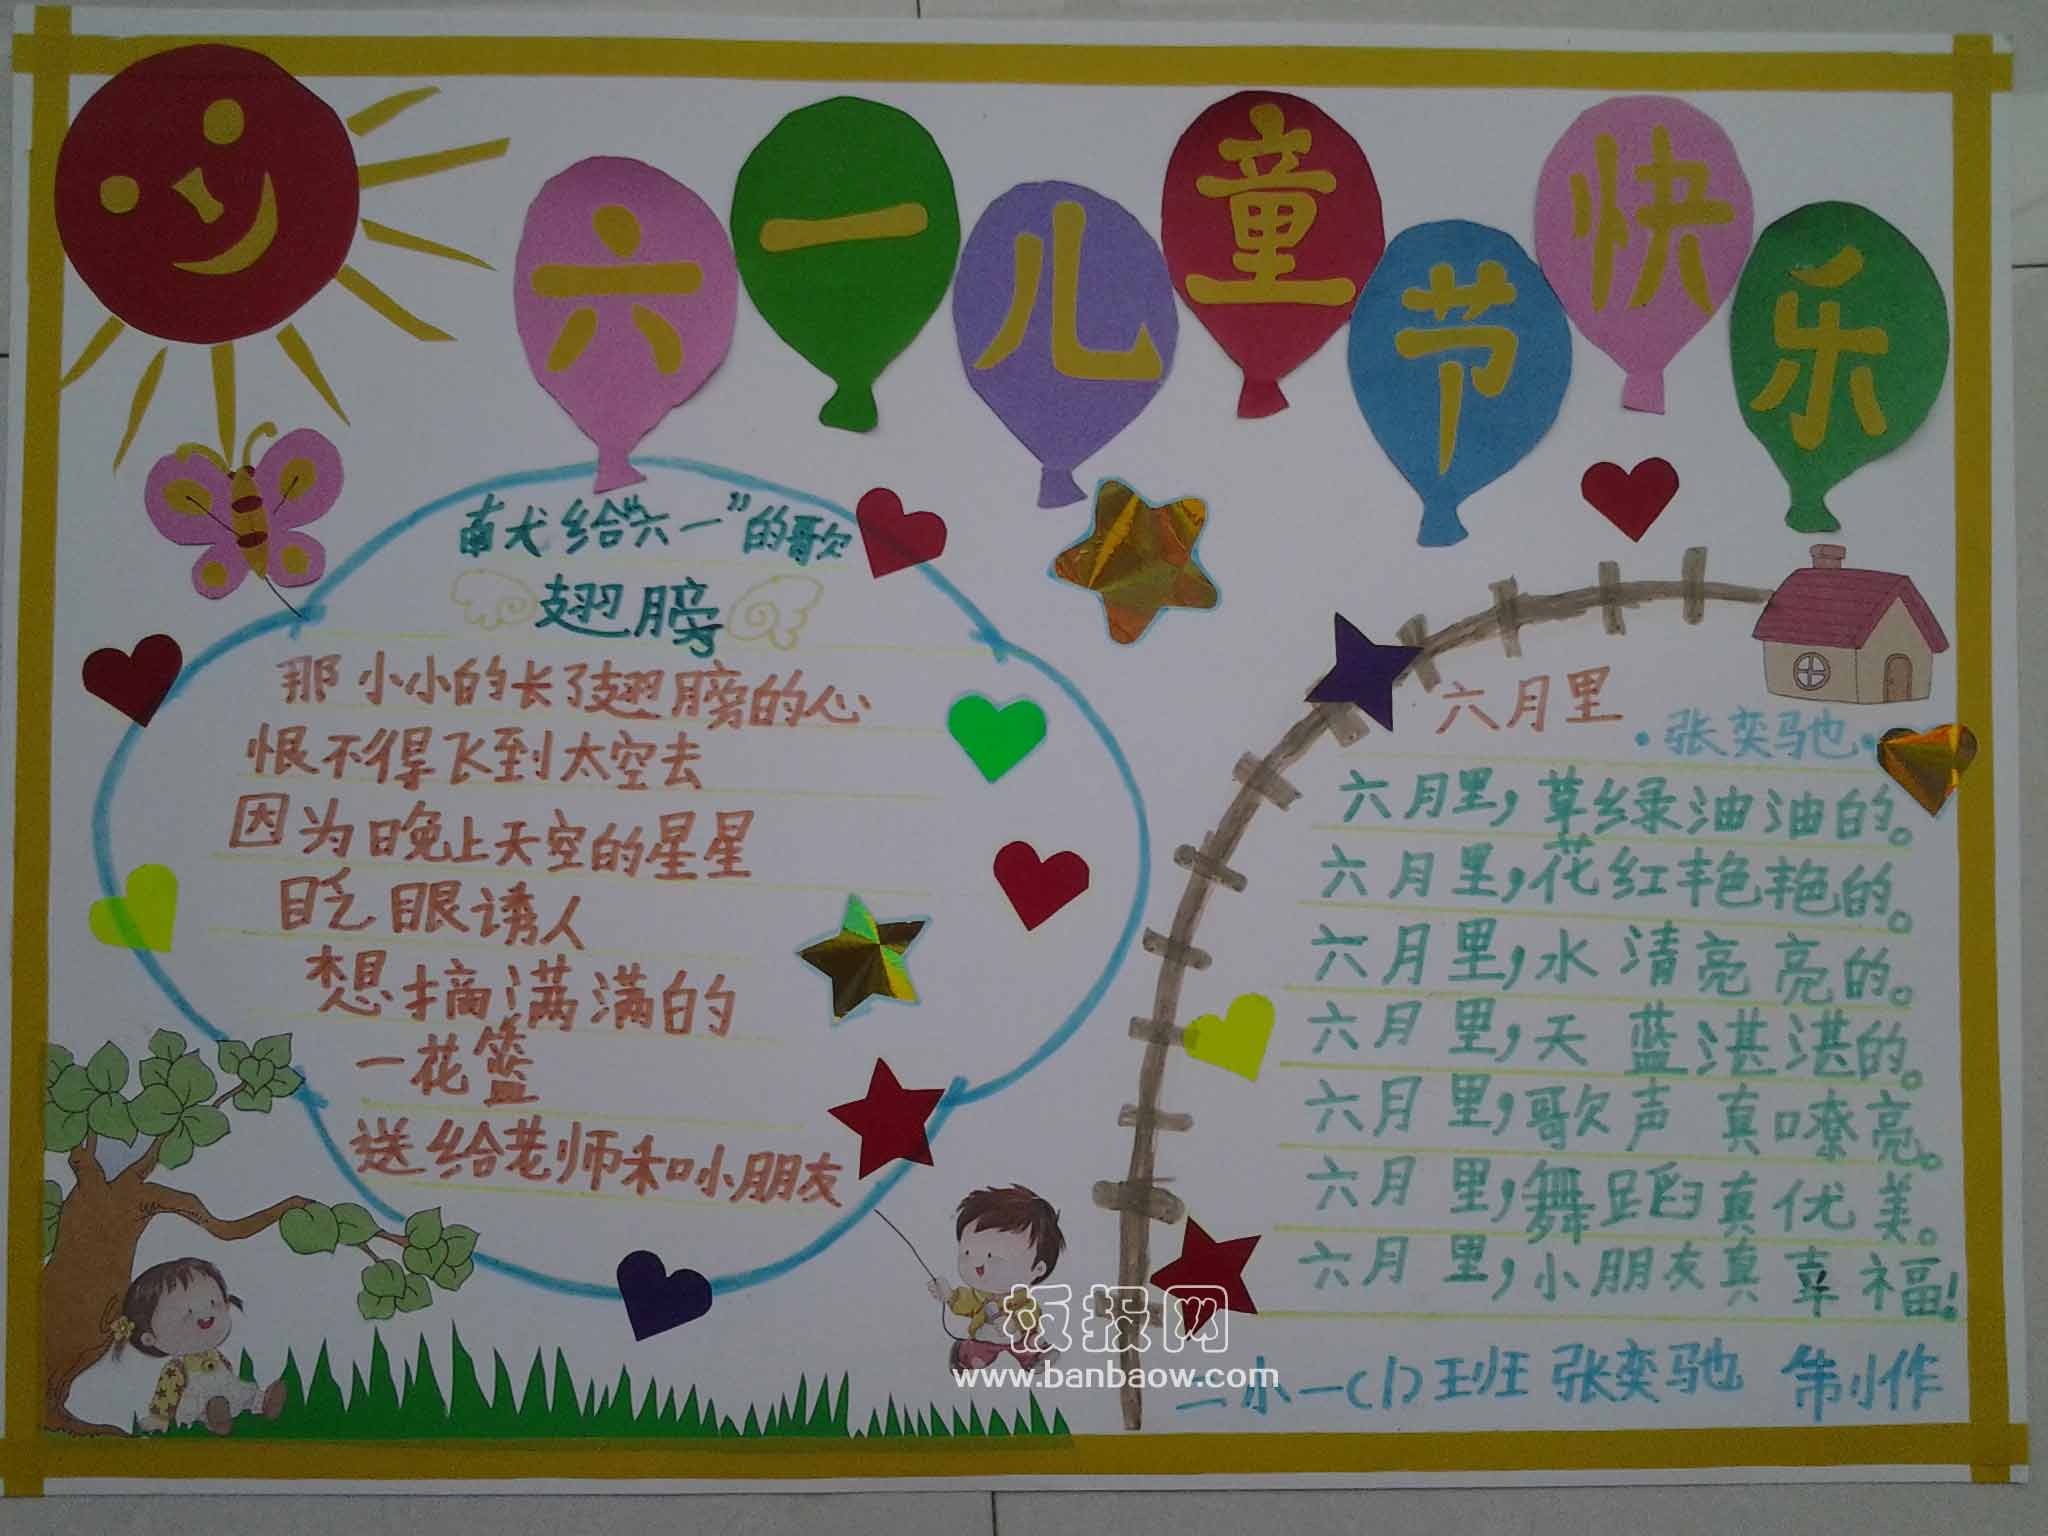 六一儿童节快乐
献给“六一”的歌
翅膀
那小小的长了翅膀的心
恨不得飞到太空去
因为晚上天空的星星
眨眼诱人
想摘满满的
一花篮
送给老师和小朋友
六月里
·张奕驰·
六月里，草绿油油的。
六月里，花红艳艳的。
六月里，水清亮亮的。
六月里，天蓝湛湛的。
六月里，歌声真嘹亮。
六月里，舞蹈真优美。
六月里，小朋友真幸福！
二小一(1)班 张奕驰 制作
板报网
www.banbaow.com